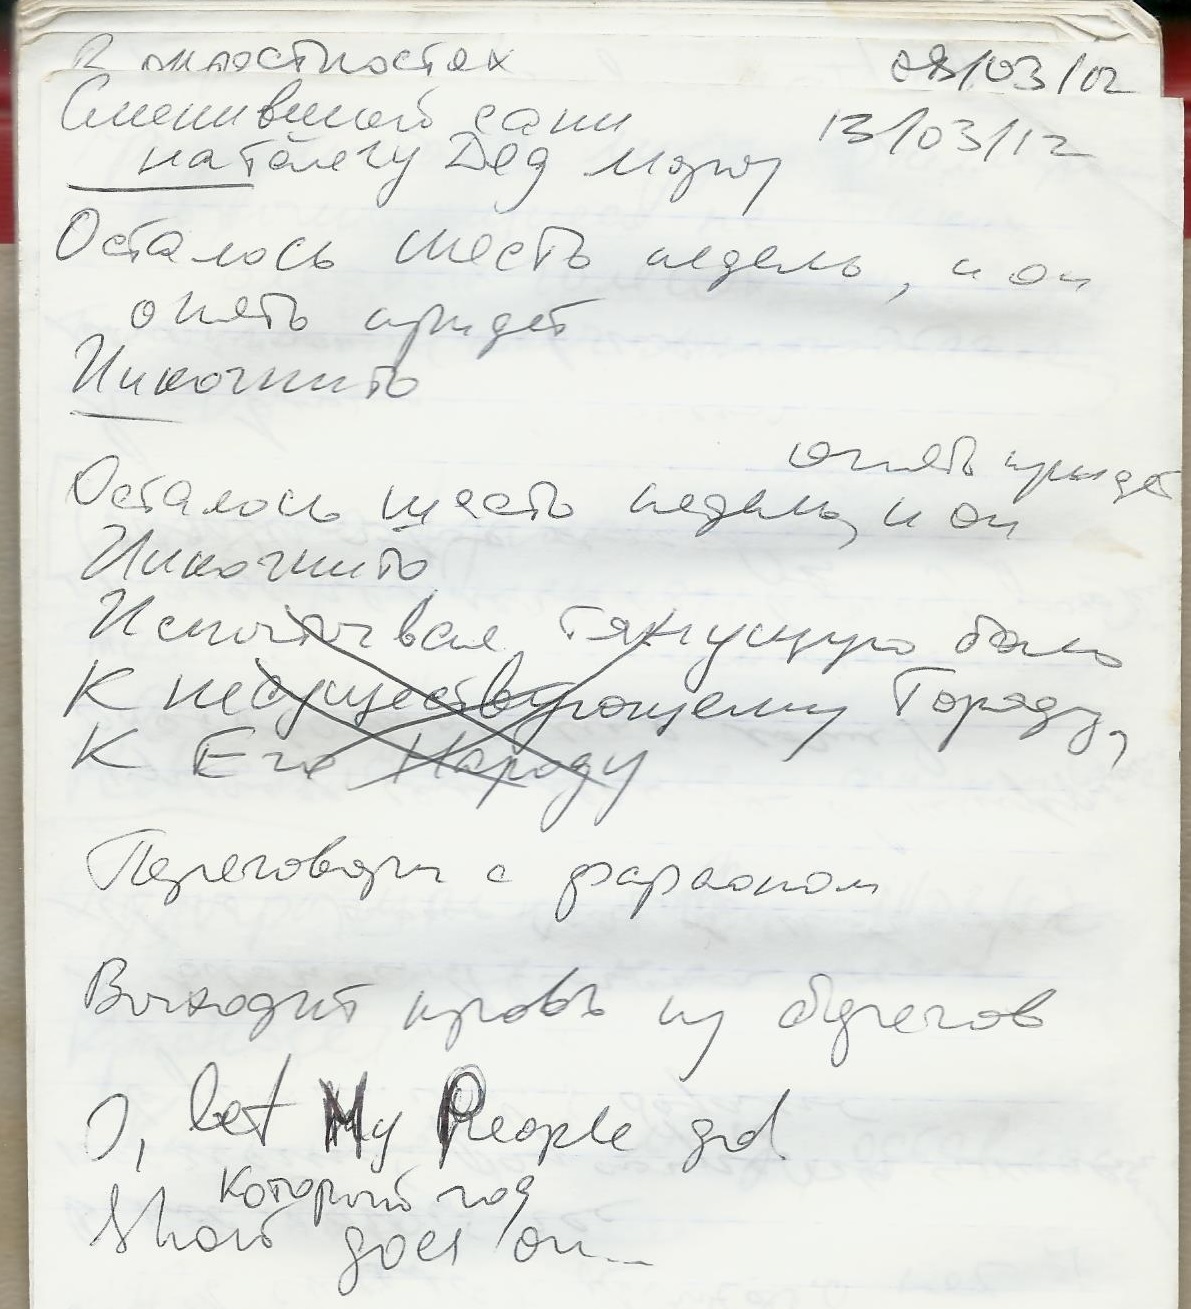 В окрестностях 08/03/02
Сменивший сани 13/03/12
на телегу Дед Мороз
Осталось шесть недель, и он
опять придёт
Инкогнито
опять придёт
Осталось шесть недель, и он
Инкогнито
Испытывая тянущую боль
К несуществующему Городу,
К Его Народу
Переговоры с фараоном
Выходит кровь из берегов
О, let My People go!
который год
Show goes on...